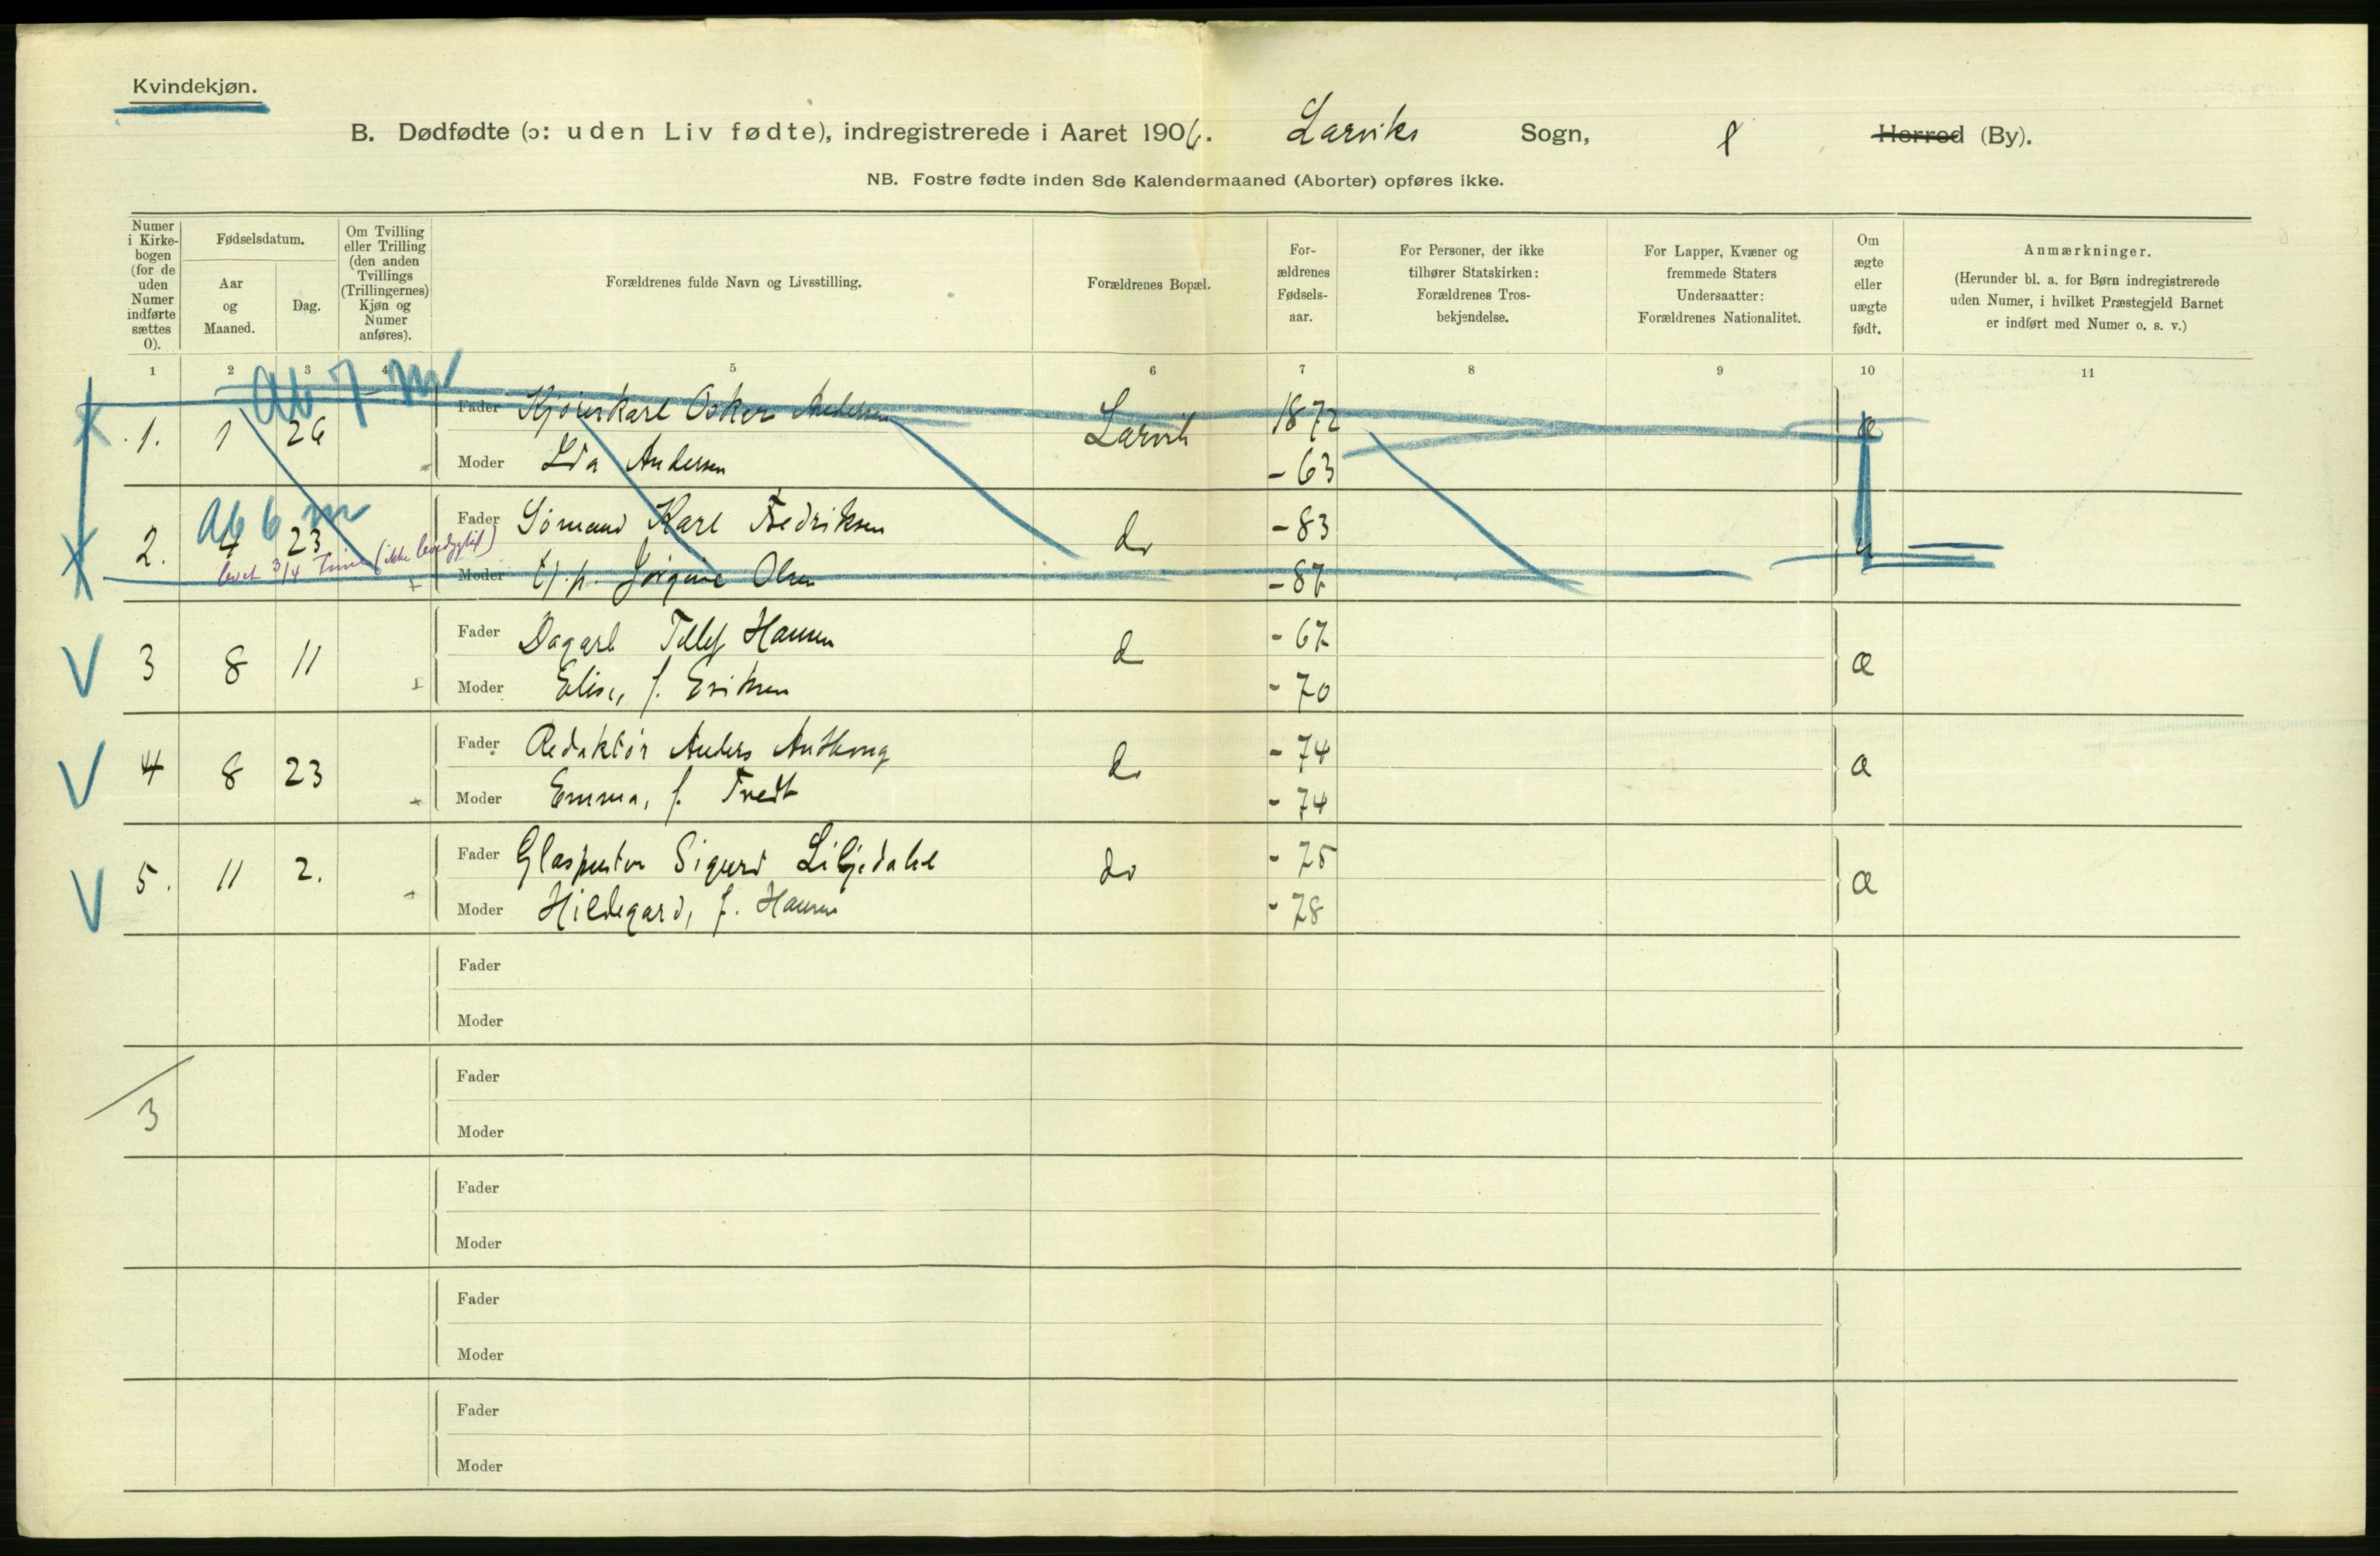 Kvindekjøn.
B. Dødfødte (ɔ: uden Liv fødte), indregistrerede i Aaret 1906. Larviks Sogn, Herred (By).
NB. Fostre fødte inden 8de Kalendermaaned (Aborter) opføres ikke.
Numer i Kirke-bogen (for de uden Numer indførte sættes 0).
Fødselsdatum.
Aar og Maaned.
Dag.
Om Tvilling eller Trilling (den anden Tvillings (Trillingernes) Kjøn og Numer anføres).
Forældrenes fulde Navn og Livsstilling.
Forældrenes Bopæl.
For-ældrenes Fødsels-aar.
For Personer, der ikke tilhører Statskirken: Forældrenes Tros-bekjendelse.
For Lapper, Kvæner og fremmede Staters Undersaatter: Forældrenes Nationalitet.
Om ægte eller uægte født.
Anmærkninger.
(Herunder bl. a. for Børn indregistrerede uden Numer, i hvilket Præstegjeld Barnet er indført med Numer o. s. v.)
1 2 3 4 5 6 7 8 9 10 11
Ab 7 m
1. 1 26 Fader Kjørerkarl Oskar Andersen Larvik 1872 æ
Moder Ida Andersen - 63
Ab 6 m
2. 4 23 Fader Sømand Karl Fredriksen do - 83 u
levet 3/4 Time (ikke levedygtig)
Moder Jørgine Olsen - 87
3 8 11 Fader Dagarb Tellef Hansen d - 67 æ
Moder Elise, f. Eriksen - 70
4 8 23 Fader Redaktør Anders do - 74 æ
Moder Emma, f. Tvedt - 74
5. 11 2. Fader Glaspuster Sigurd Liljedahl do - 75 æ
Moder Hildegard, f. Hansen - 78
Fader
Moder
Fader
3
Moder
Fader
Moder
Fader
Moder
Fader
Moder